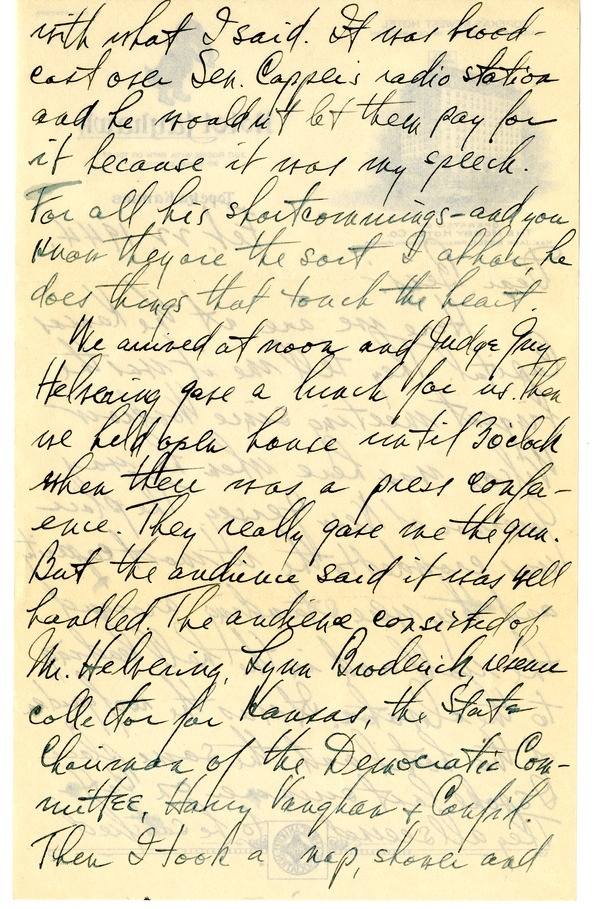 with what I said. It was broad-
cast over Sen. Capper's radio station
and he wouldn't let them pay for
it because it was my speech.
For all his shortcommings - and you
know they are the sort I abhor, he
does things that touch the heart.
We arrived at noon and Judge Guy
Helvering gave a lunch for us. Then
we held open house until 3 o'clock
when there was a press confer-
ence. They really gave me the gun.
But the audience said it was well
handled. The audience consisted of
Mr. Helvering, Lynn Broderick, revenue
collector for Kansas, the State
Chairman of the Democratic Com-
mittee, Harry Vaughan + Canfil.
Then I took a nap, shower and